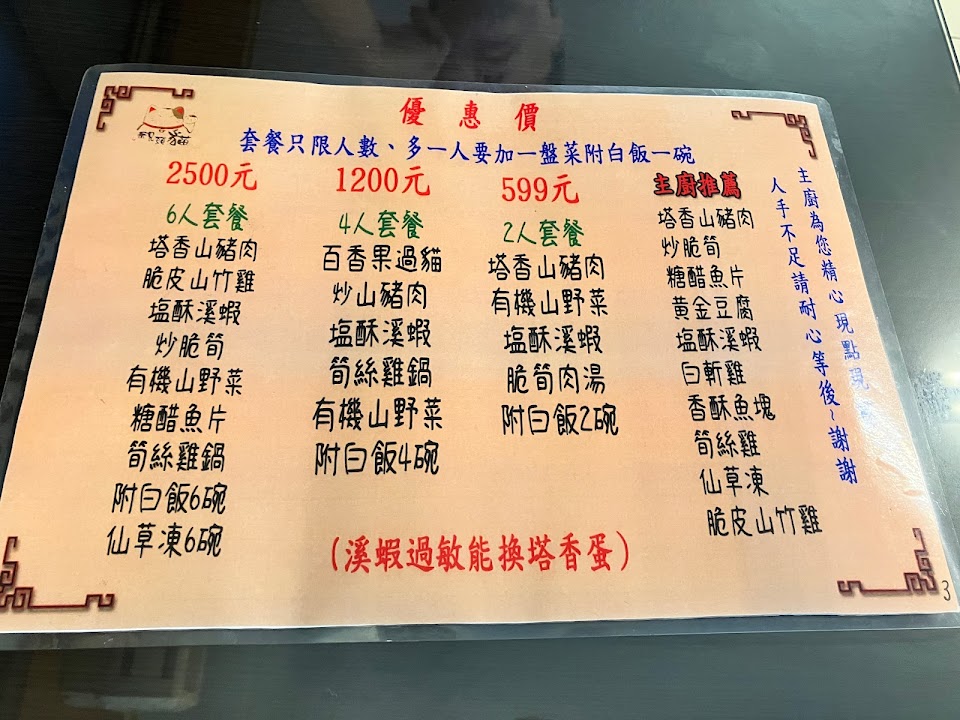 優惠價
套餐只限人數、多一人要加一盤菜附白飯一碗
2500元
6人套餐
塔香山豬肉
脆皮山竹雞
塩酥溪蝦
炒脆筍
有機山野菜
糖醋魚片
筍絲雞鍋
附白飯6碗
仙草凍6碗
1200元
4人套餐
百香果過貓
炒山豬肉
塩酥溪蝦
筍絲雞鍋
有機山野菜
附白飯4碗
599元
2人套餐
塔香山豬肉
有機山野菜
塩酥溪蝦
脆筍肉湯
附白飯2碗
主廚推薦
塔香山豬肉
炒脆筍
糖醋魚片
黃金豆腐
塩酥溪蝦
白斬雞
香酥魚塊
筍絲雞
仙草凍
脆皮山竹雞
主廚為您精心現點現
人手不足請耐心等後~謝謝
(溪蝦過敏能換塔香蛋)
3